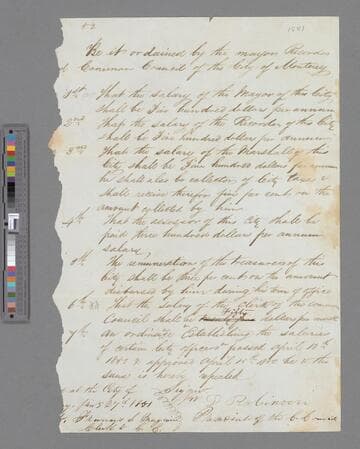 52
1851
Be it ordained by the mayor Recorder
& Common Council of the City of Monterey
1st That the salary of the Mayor of this City
shall be Five hundred dollars per annum
2nd That the salary of the Recorder of the City
shall be Five hundred dollars per annum
3rd That the salary of the Marshall of this
City shall be Five hundred dollars per annum
he shall also be collector of City taxes &
shall receive therefor five per cent on the
amount collected by him
4th That the surveyor of this City shall be
paid three hundred dollars per annum
salary
5th The remuneration of the treasurer of this
City shall be three per cent on the amount
disbursed by him during his term of office
6th That the salary of the Clerk of this common
Council shall be fifty dollars per month
7th An ordinance Establishing the salaries
of certain city officers passed April 12th
1851 & approved April be & the
same is hereby repealed
at the City of
27th 1851
P. Robinson
President of the C Council
Clerk